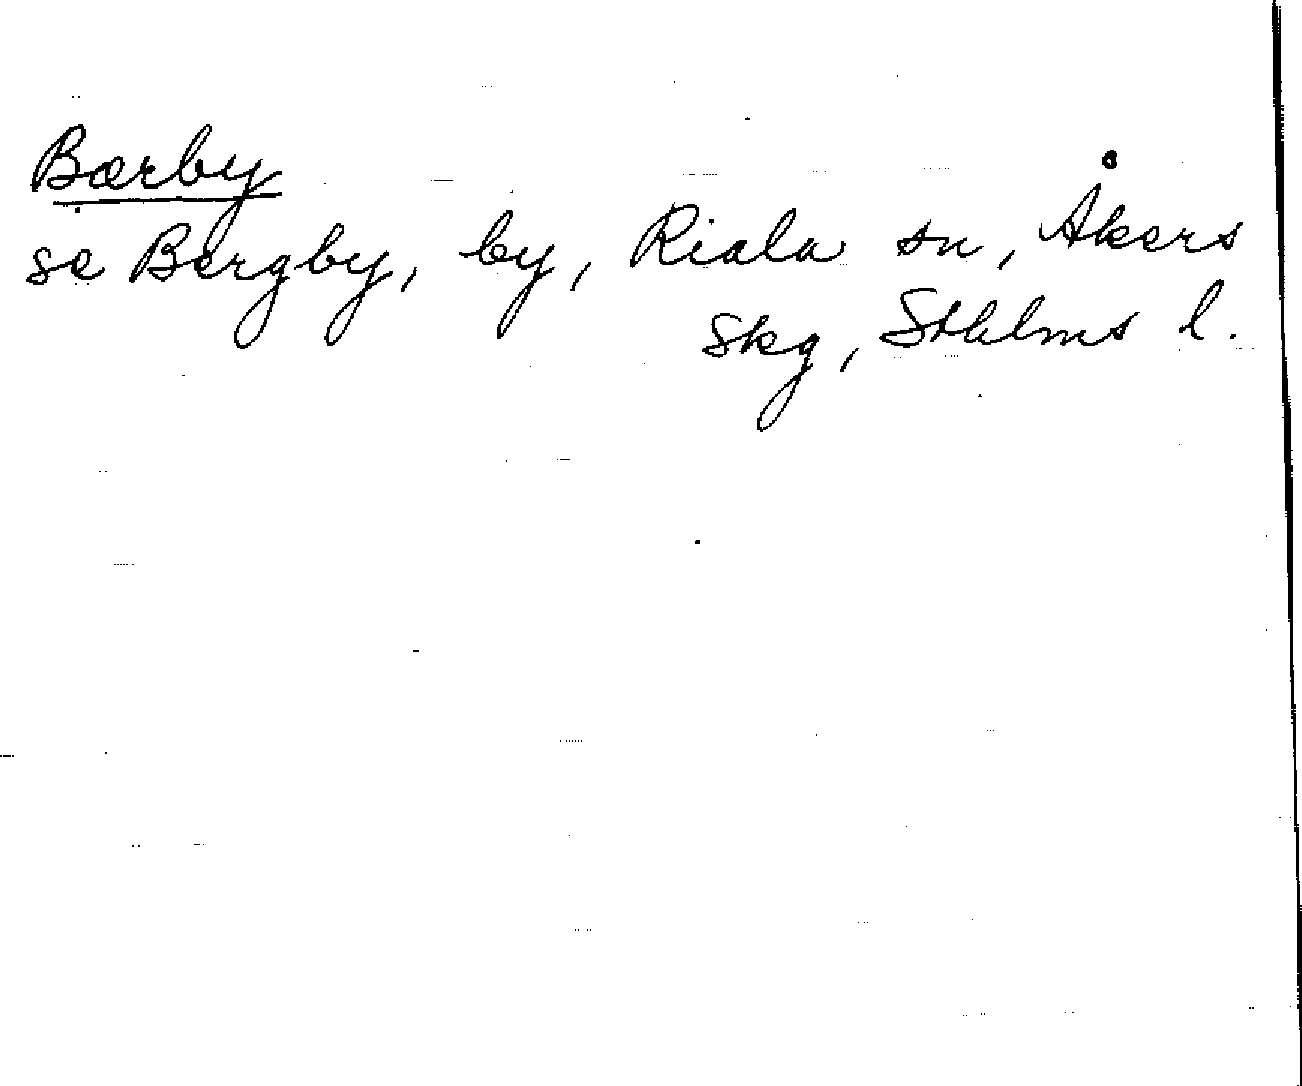 Bærby
se Bergby, by, Riala sn, Åkers
Skg, Sthlms l.